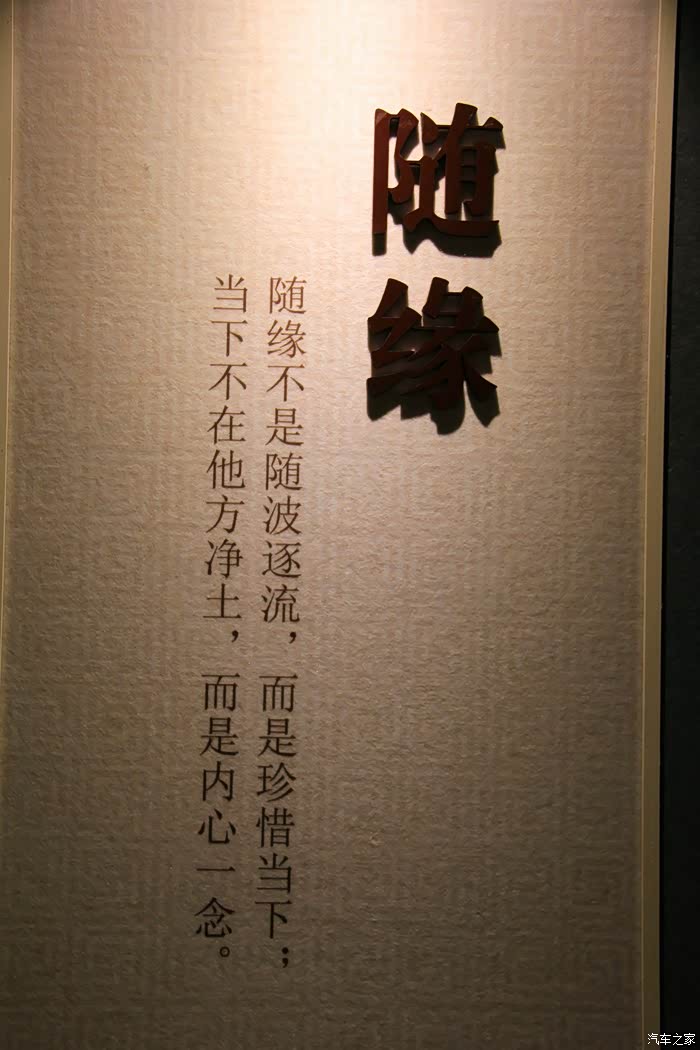 随缘
随缘不是随波逐流，而是珍惜当下；
当下不在他方净土，而是内心一念。
汽车之家